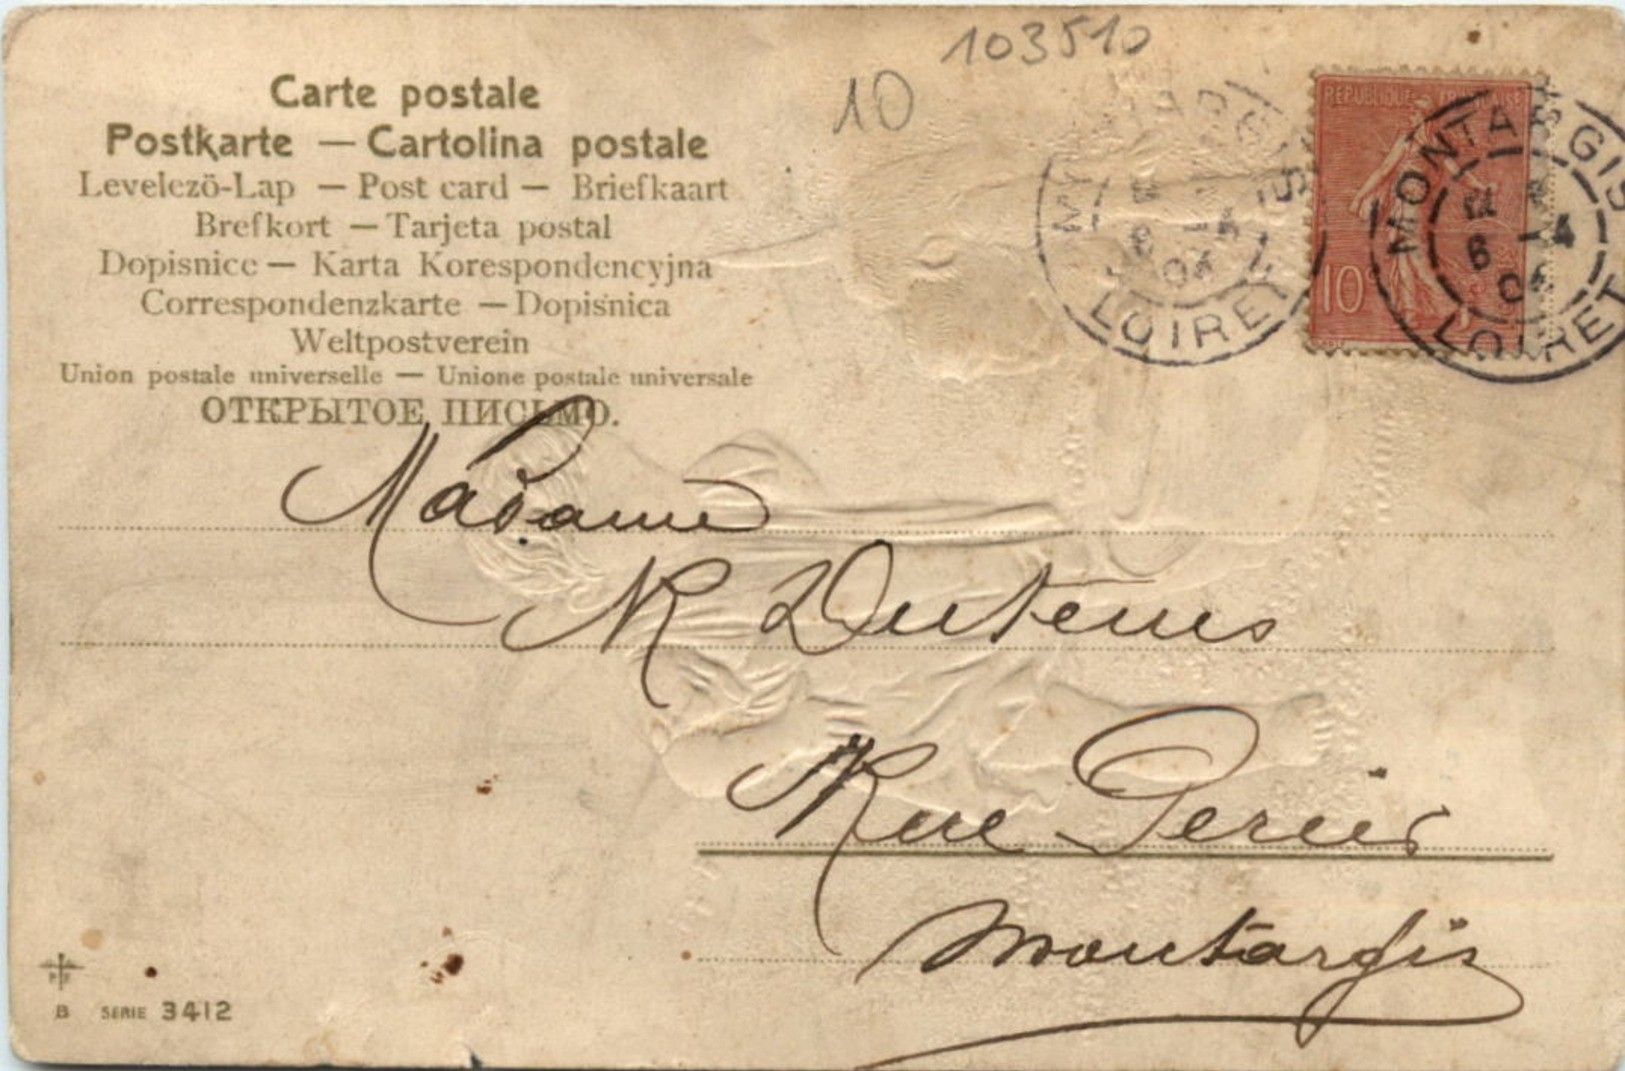 103510
10
Carte postale
Postkarte — Cartolina postale
Levelezö-Lap — Post card — Briefkaart
Brefkort — Tarjeta postal
Dopisnice — Karta Korespondencyjna
Correspondenzkarte — Dopisnica
Weltpostverein
Union postale universelle — Unione postale universale
ОТКРЫТОЕ ПИСЬМО.
REPUBLIQUE FRANCAISE
10c
MONTARGIS
6 -4
04
LOIRET
MONTARGIS
6 -4
LOIRET
Madame
Rue Perier
Montargis
B SERIE 3412